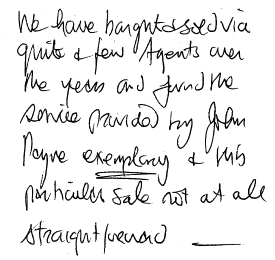 We have bought & sold via
quite a few Agents over
the years and found the
service provided by John
Payne exemplary & this
particular sale not at all
straightforward